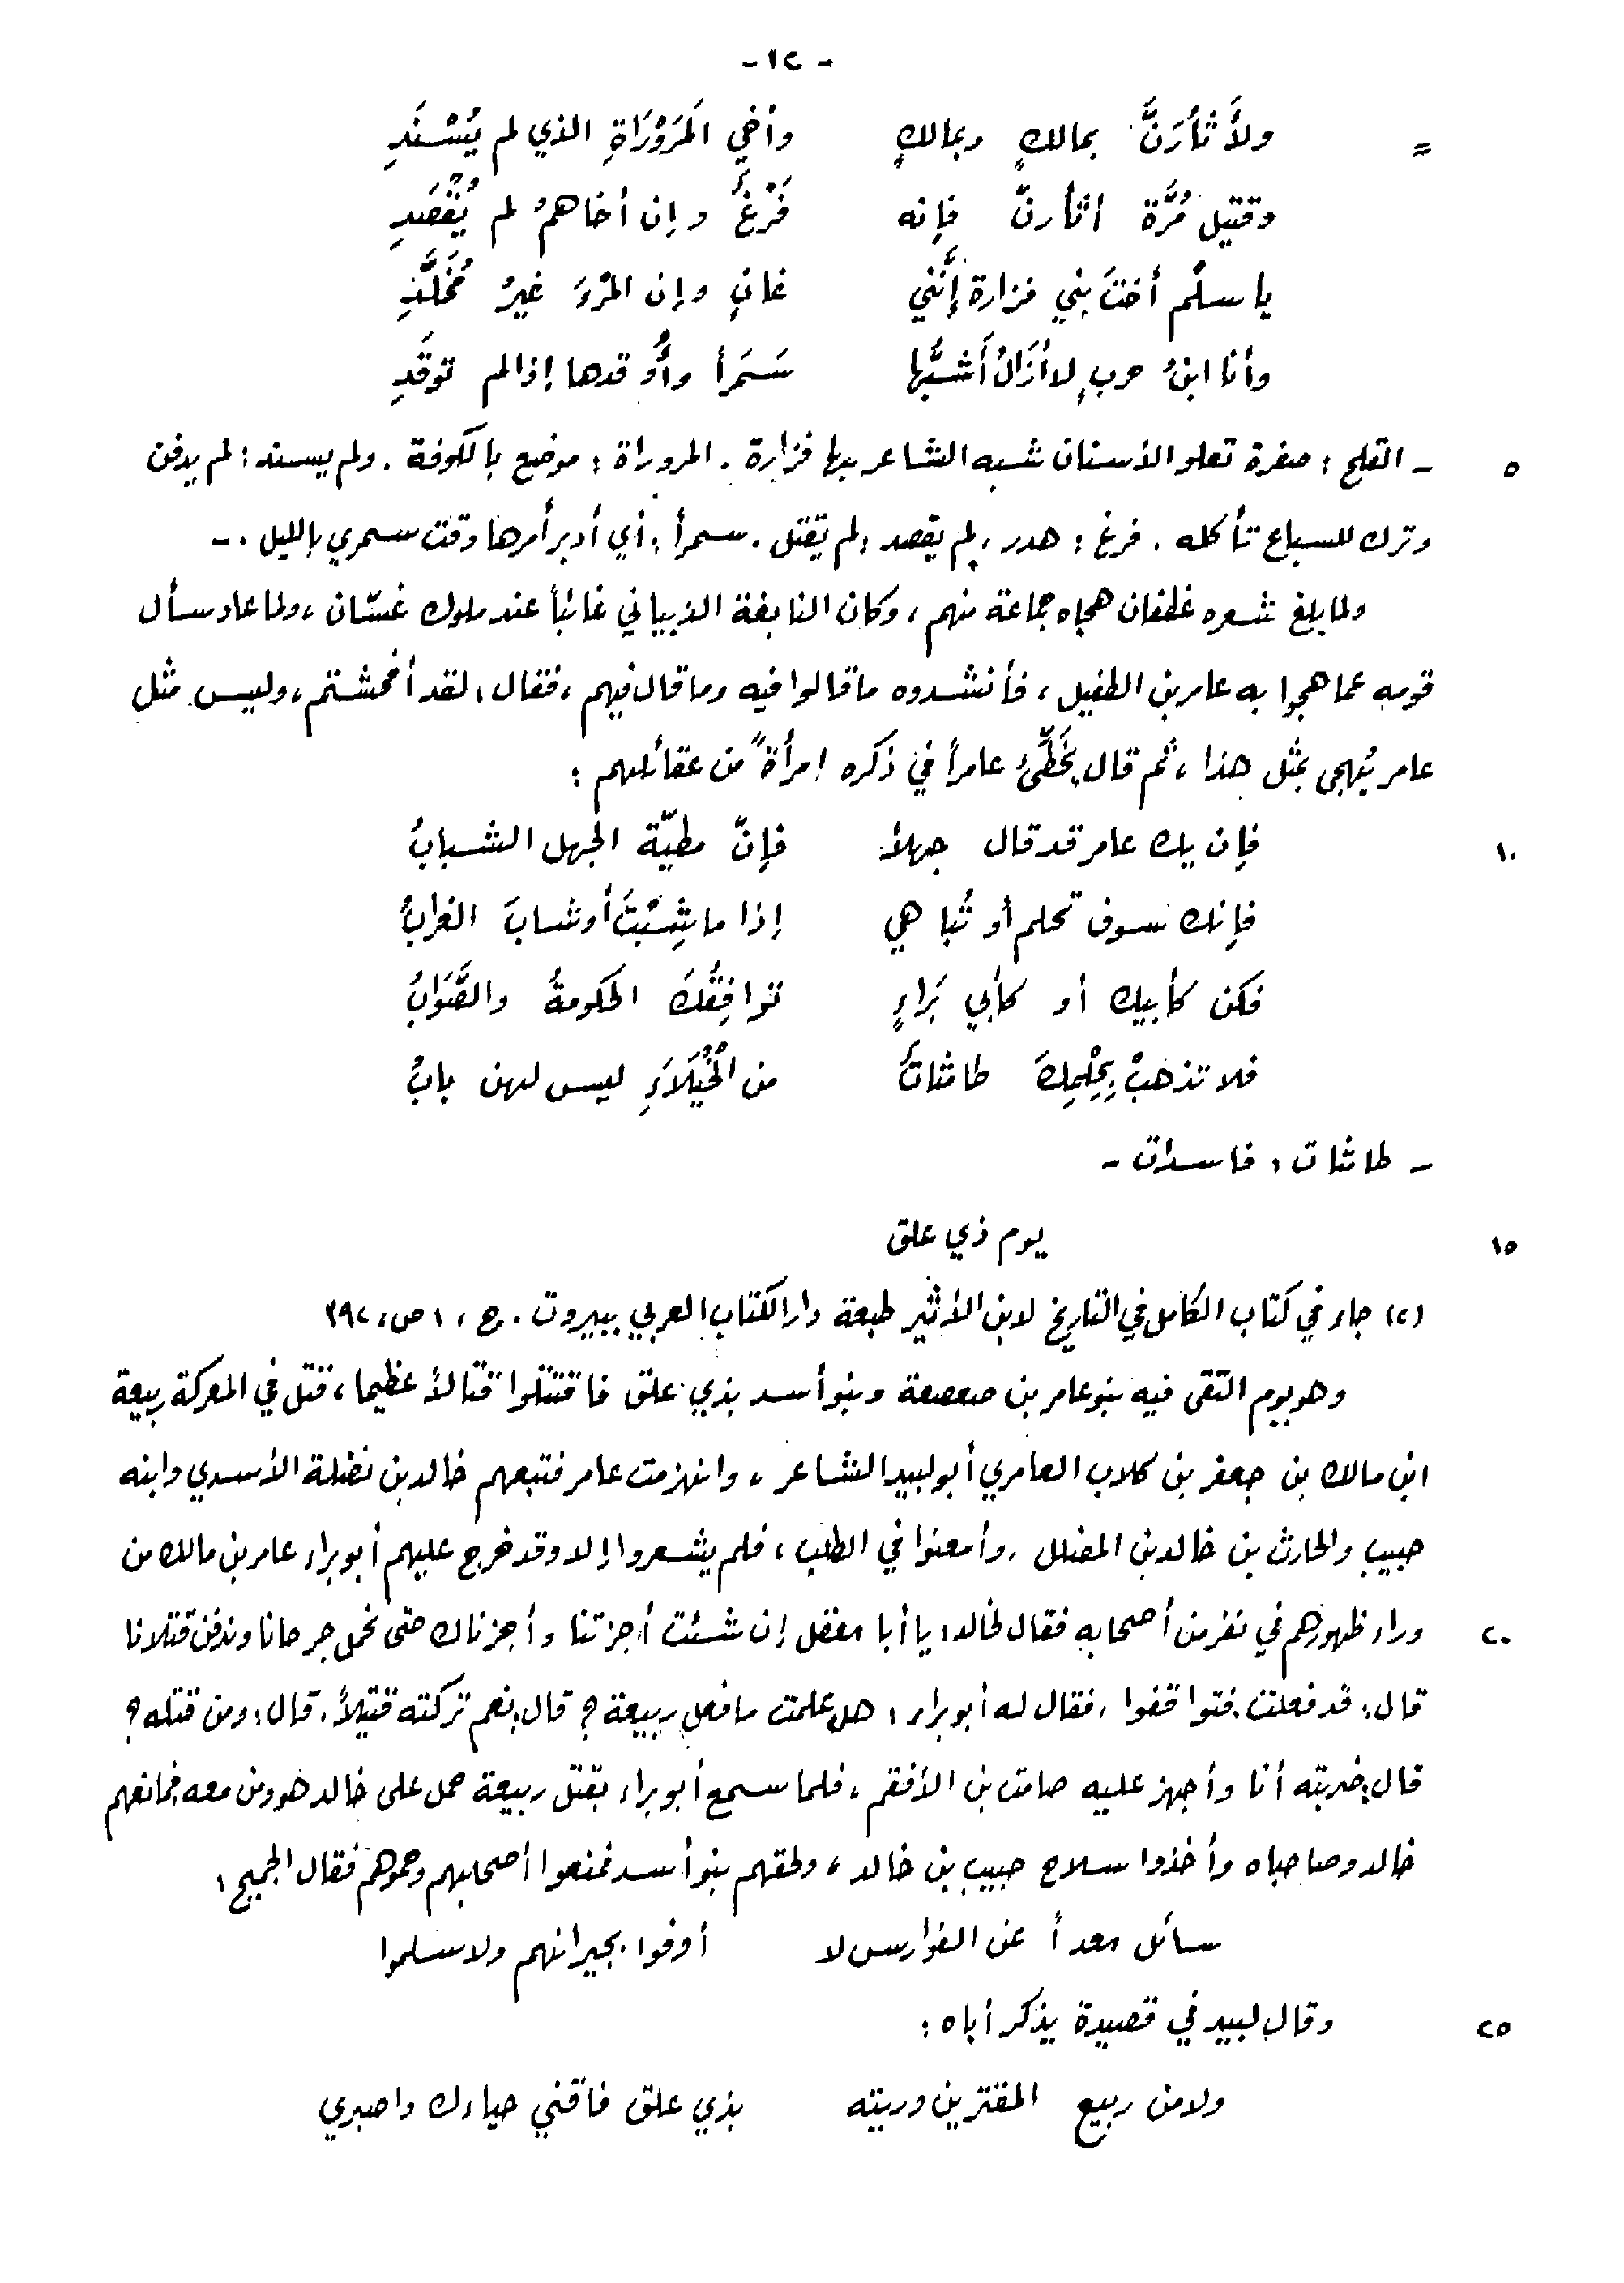 - ١٢ -
= ولأَثأرَنَّ بمالكٍ وبمالكٍ وأخي المَرَوْرَاةِ الذي لم يُسْنَدِ
وقتيل مُرَّة أثأرنّ فإنه فَرْغٌ وإن أخاهمُ لم يُقْصَدِ
يا سلْم أختَ بني فزارة إنَّني غانٍ وإن المرْءَ غيرُ مُخَلَّدِ
وأنا ابنُ حربٍ لا أزَالُ أَشبُّها سَمَراً وأُوقدها إذا لم توقَدِ
٥ - القلح : صفرة تعلو الأسنان شبه الشاعر بها فزارة . المروراة : موضع بالكوفة . ولم يسند : لم يدفن
وترك للسباع تأكله . فرغ : هدر ، لم يقصد : لم يقتل . سمراً : أي أدبر أمرها وقت سمري بالليل . -
ولما بلغ شعره غطفان هجاه جماعة منهم ، وكان النابغة الذبياني غائباً عند ملوك غسّان ، ولما عاد سأل
قومه عما هجوا به عامر بن الطفيل ، فأنشدوه ما قالوا فيه وما قال فيهم ، فقال : لقد أفحشتم ، وليس مثل
عامر يُهجى بمثل هذا ، ثم قال يُخَطِّئُ عامراً في ذكره امرأةً من عقائلهم :
١٠ فإن يك عامر قد قال جهلاً فإنّ مطيّة الجهل الشبابُ
فإنك سوف تحلم أو تُباهي إذا ما شِبْتَ أو شابَ الغرابُ
فكن كأبيك أو كأبي بَراءٍ توافِقُكَ الحكومةُ والصَّوَابُ
فلا تذهبْ بِحِلْمِكَ طاشاتٌ من الْخُيَلَاءِ ليس لهن بابُ
- طاشات : فاسدات -
١٥ يوم ذي علق
(٢) جاء في كتاب الكامل في التاريخ لابن الأثير طبعة دار الكتاب العربي ببيروت . ج ، ١ ص ، ٣٩٢
وهو يوم التقى فيه بنو عامر بن صعصعة وبنو أسد بذي علق فاقتتلوا قتالاً عظيما ، قتل في المعركة ربيعة
ابن مالك بن جعفر بن كلاب العامري أبو لبيد الشاعر ، وانهزمت عامر فتبعهم خالد بن نضلة الأسدي وابنه
حبيب والحارث بن خالد بن المضلل . وأمعنوا في الطلب ، فلم يشعروا إلا وقد خرج عليهم أبو براء عامر بن مالك من
٢٠ وراء ظهورهم في نفر من أصحابه فقال لخالد : يا أبا معقل إن شئت أجزتنا وأجزناك حتى نحمل جرحانا وندفن قتلانا
قال : قد فعلت . فتواقفوا . فقال له أبو براء : هل علمت ما فعل ربيعة ؟ قال : نعم تركته قتيلاً . قال : ومن قتله ؟
قال : ضربته أنا وأجهز عليه صامت بن الأفقم ، فلما سمع أبو براء بقتل ربيعة حمل على خالد هو ومن معه فمانعهم
خالد وصاحباه وأخذوا سلاح حبيب بن خالد ، ولحقهم بنو أسد فمنعوا أصحابهم وحموهم فقال الجميح :
سائل معداً عن الفوارس لا أوفوا بجيرانهم ولا سلموا
٢٥ وقال لبيد في قصيدة يذكر أباه :
ولا من ربيع المقترين رزئته بذي علق فاقني حياءك واصبري